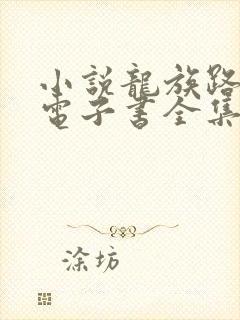 小說龍族路
電子書全集
涂坊